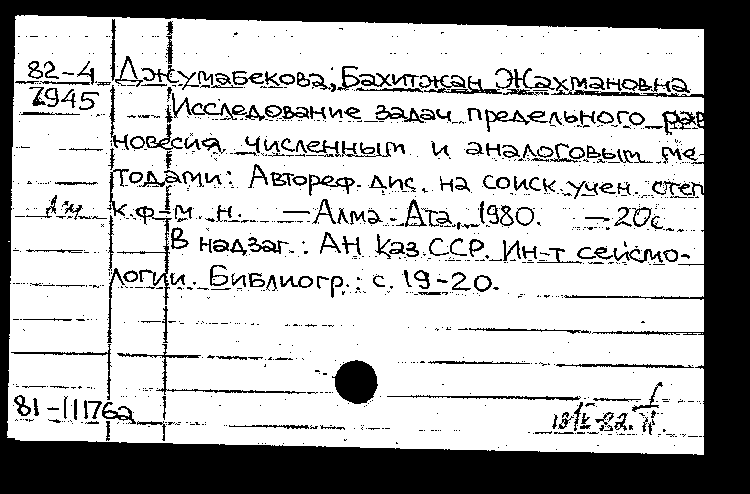 82-4 Джумабекова, Бахитжан Жахмановна
7945 Исследование задач предельного рав
новесия численным и аналоговым ме-
тодами: Автореф. дис. на соиск. учен. степ
к.ф-м.н. — Алма-Ата, 1980. — 20с
В надзаг.: АН Каз.ССР. Ин-т сейсмо-
логии. Библиогр.: с. 19-20.
81-111762